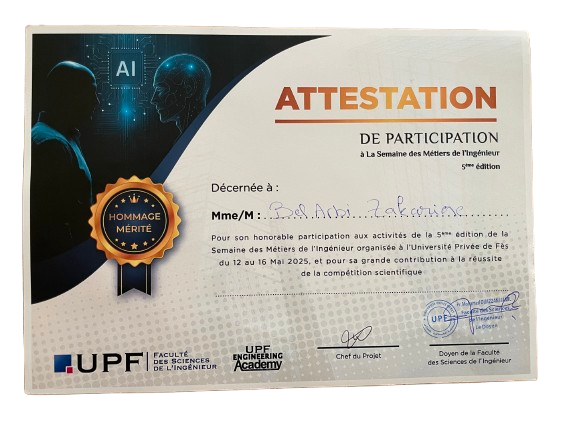 AI
ATTESTATION
DE PARTICIPATION
à La Semaine des Métiers de l'Ingénieur
5ème édition
HOMMAGE
MÉRITÉ
Décernée à :
Mme/M : Bel Arbi Zakariae
Pour son honorable participation aux activités de la 5ème édition de la
Semaine des Métiers de l'Ingénieur organisée à l'Université Privée de Fès
du 12 au 16 Mai 2025, et pour sa grande contribution à la réussite
de la compétition scientifique
UPF
Faculté des Sciences
de l'Ingénieur
Le Doyen
UPF
FACULTÉ
DES SCIENCES
DE L'INGÉNIEUR
UPF
ENGINEERING
Academy
Chef du Projet
Doyen de la Faculté
des Sciences de l'Ingénieur